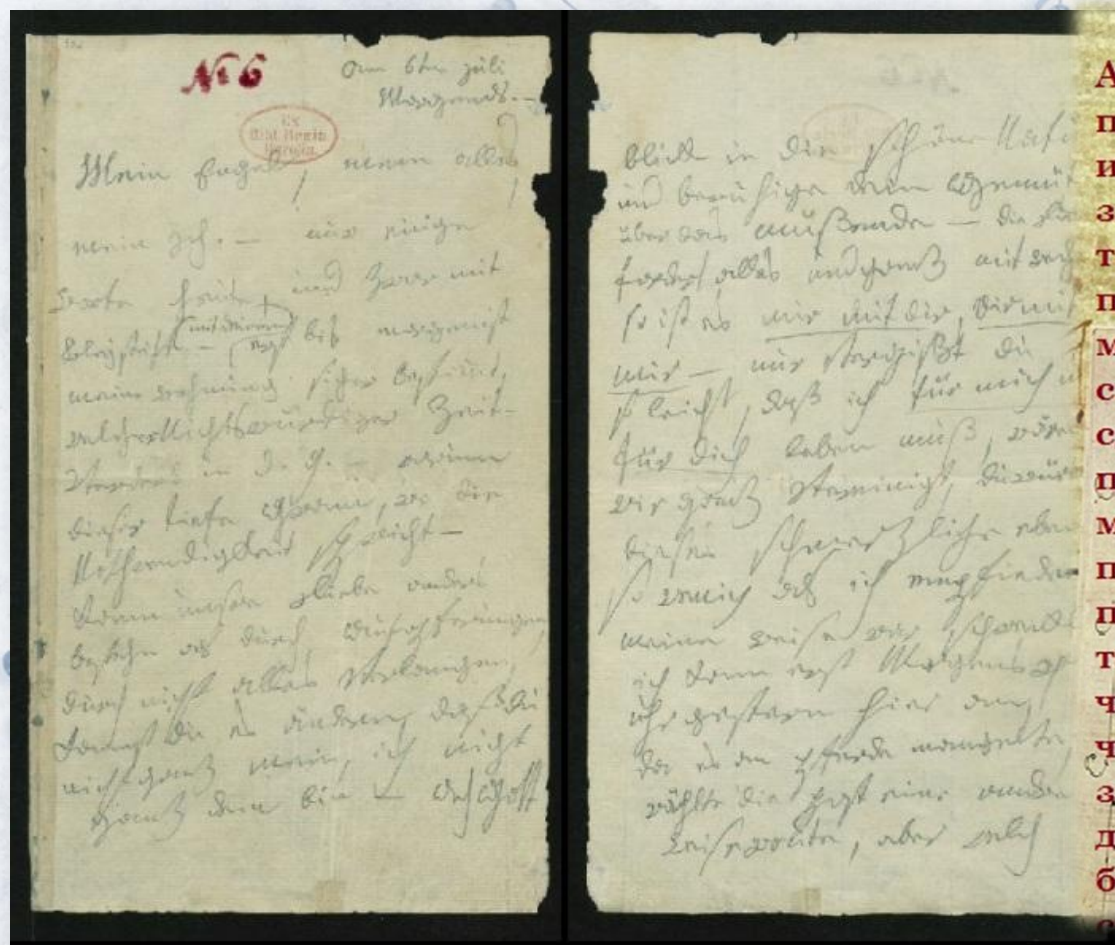 № 6
am 6ten Juli
Morgends. —
Ex
Bibl. Regia
Berolin.
Mein Engel, mein alles
mein Ich. — nur einige
Worte heute, und zwar mit
Bleystift — (mit deinem) erst bis morgen ist
meine Wohnung sicher bestimmt,
welcher Nichtswürdiger Zeit-
Verderb in d. g. — warum
dieser tiefe Gram, wo die
Nothwendigkeit spricht —
Kann unsre Liebe anders
bestehn als durch Aufopferungen,
durch nicht alles verlangen,
kannst du es ändern, daß du
nicht ganz mein, ich nicht
ganz dein bin — Ach Gott
blick in die schöne Natu
und beruhige dein Gemüt
über das müßende — die Lie
fordert alles und ganz mit rech
so ist es mir mit dir, dir mit
mir — nur vergißt du
so leicht, daß ich für mich u
für dich leben muß, wären
wir ganz vereinigt, du wür
dieses schmerzliche eben
so wenig als ich empfinden
meine Reise war schreckl
ich kam erst Morgens 4
uhr gestern hier an,
da es an Pferde mangelte,
wählte die Post eine andre
Reiseroute, aber welch
А
п
и
з
т
п
м
с
с
п
м
п
п
т
ч
ч
з
д
б